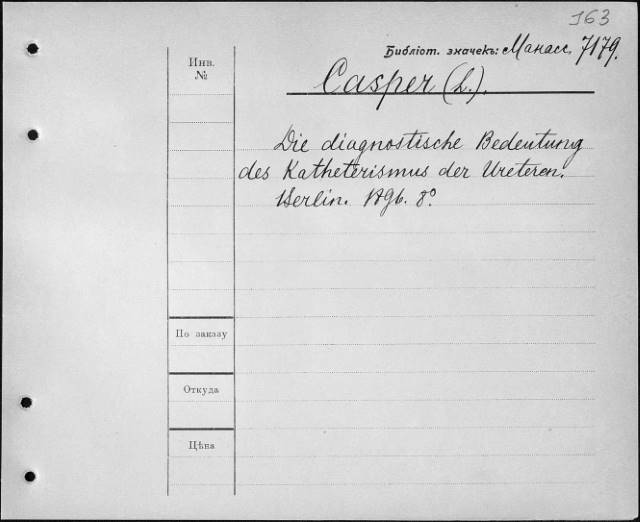 763
Библіот. значекъ: Манасс. 7179.
Инв.
№
Casper (L.).
Die diagnostische Bedeutung
des Katheterismus der Ureteren.
Berlin. 1896. 8°
По заказу
Откуда
Цѣна